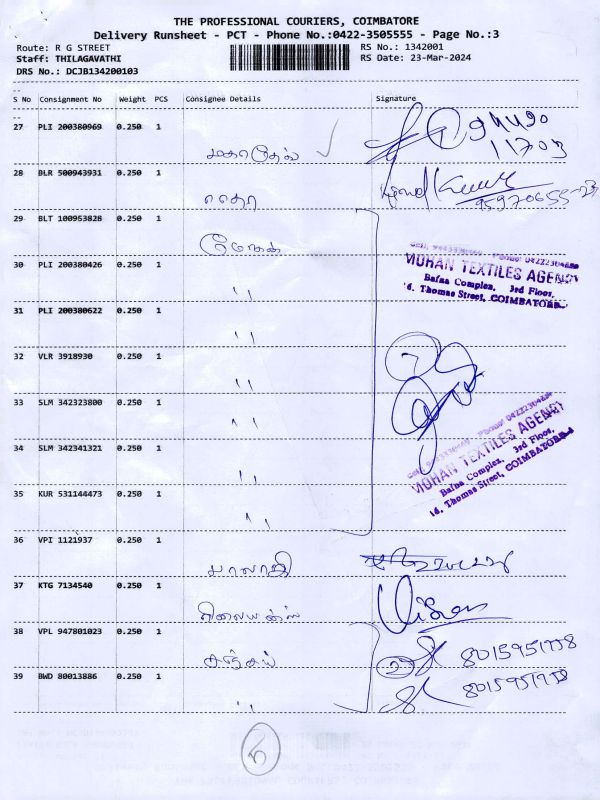 THE PROFESSIONAL COURIERS, COIMBATORE
Delivery Runsheet - PCT - Phone No.:0422-3505555 - Page No.:3
Route: R G STREET RS No.: 1342001
Staff: THILAGAVATHI RS Date: 23-Mar-2024
DRS No.: DCJB134200103
S No Consignment No Weight PCS Consignee Details Signature
27 PLI 200380969 0.250 1
மகாதேவ் ✓
28 BLR 500943931 0.250 1
29 BLT 100953828 0.250 1
30 PLI 200380426 0.250 1
"
31 PLI 200380622 0.250 1
"
32 VLR 3918930 0.250 1
"
33 SLM 342323800 0.250 1
"
34 SLM 342341321 0.250 1
"
35 KUR 531144473 0.250 1
"
MOHAN TEXTILES AGENCY
Bafna Complex, 3rd Floor,
16, Thomas Street, COIMBATORE
7
MOHAN TEXTILES AGENCY
Bafna Complex, 3rd Floor,
16, Thomas Street, COIMBATORE
36 VPI 1121937 0.250 1
பாலாஜி
37 KTG 7134540 0.250 1
ரிலையன்ஸ்
38 VPL 947801023 0.250 1
சஞ்சய் 2 8015951758
39 BWD 80013886 0.250 1
" 8015951758